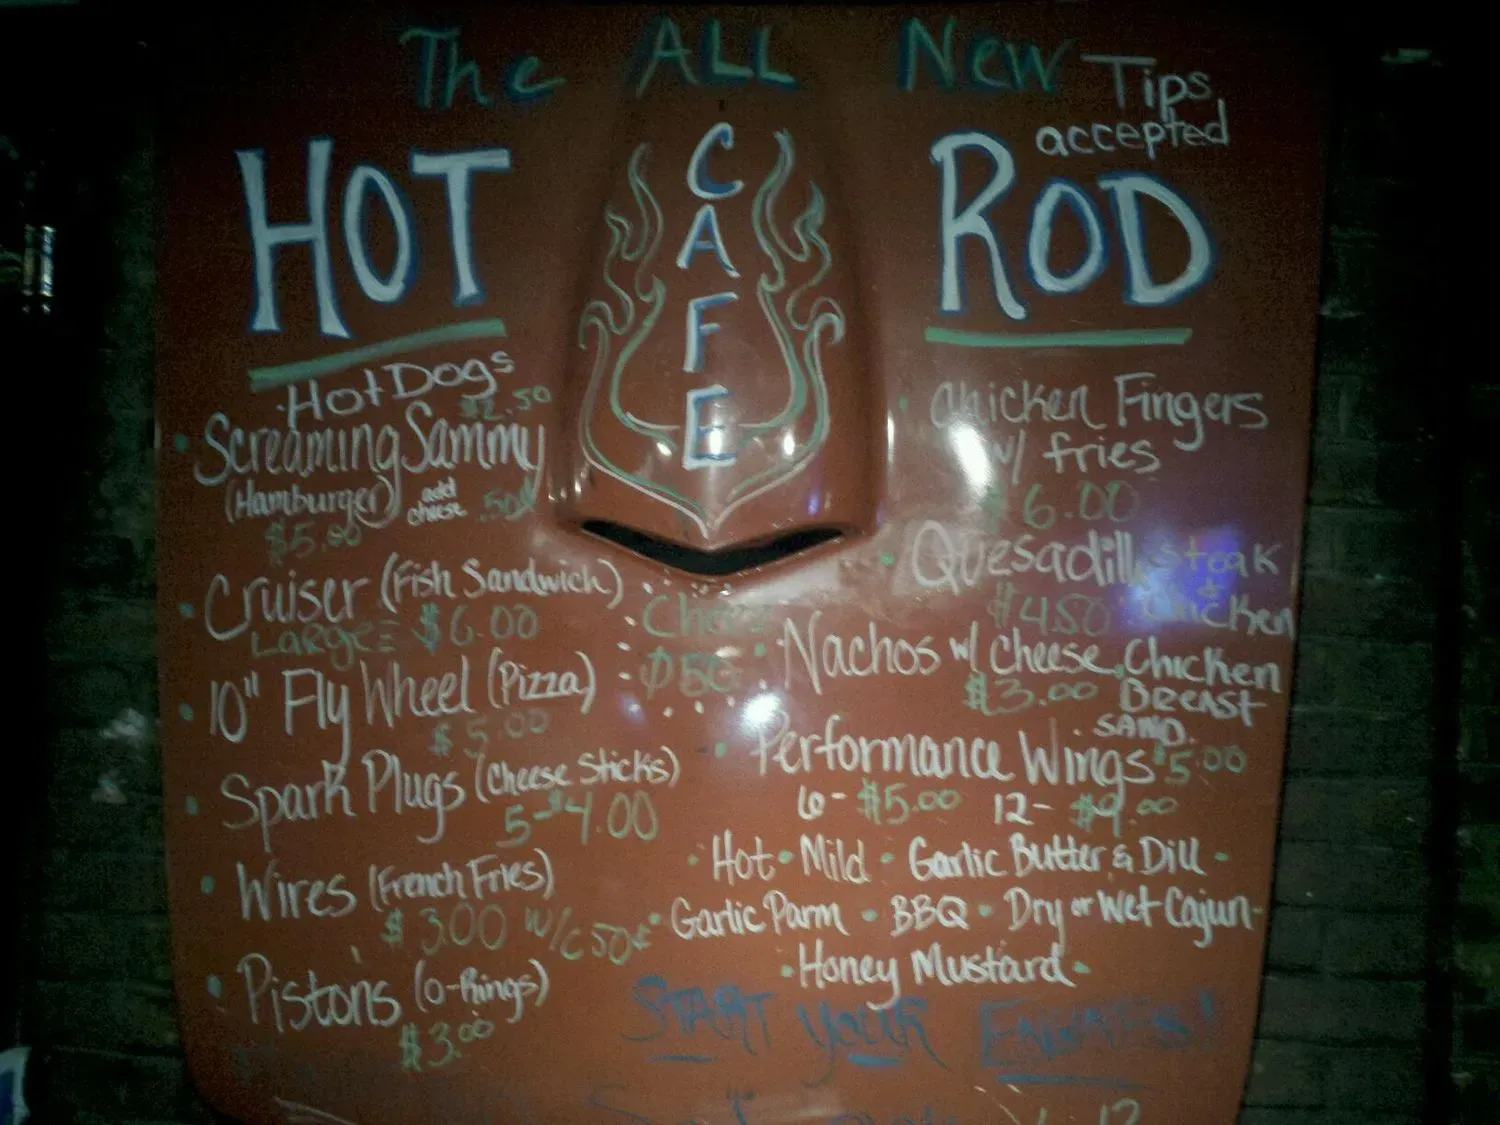 The ALL New
Tips accepted
HOT CAFE ROD
HotDogs $2.50
Screaming Sammy
(Hamburger) add cheese .50¢
$5.00
Cruiser (Fish Sandwich)
LARGE $6.00
10" Fly Wheel (Pizza)
$5.00
Spark Plugs (Cheese Sticks)
5-$4.00
Wires (French Fries)
$3.00 w/c 50¢
Pistons (O-Rings)
$3.00
Chicken Fingers
w/ fries
$6.00
Quesadilla steak
$4.50 & chicken
Nachos w/ cheese
$3.00
Chicken
Breast
SAND.
$5.00
Performance Wings
6- $5.00 12- $9.00
Hot • Mild • Garlic Butter & Dill -
Garlic Parm • BBQ • Dry or Wet Cajun -
• Honey Mustard •
START YOUR